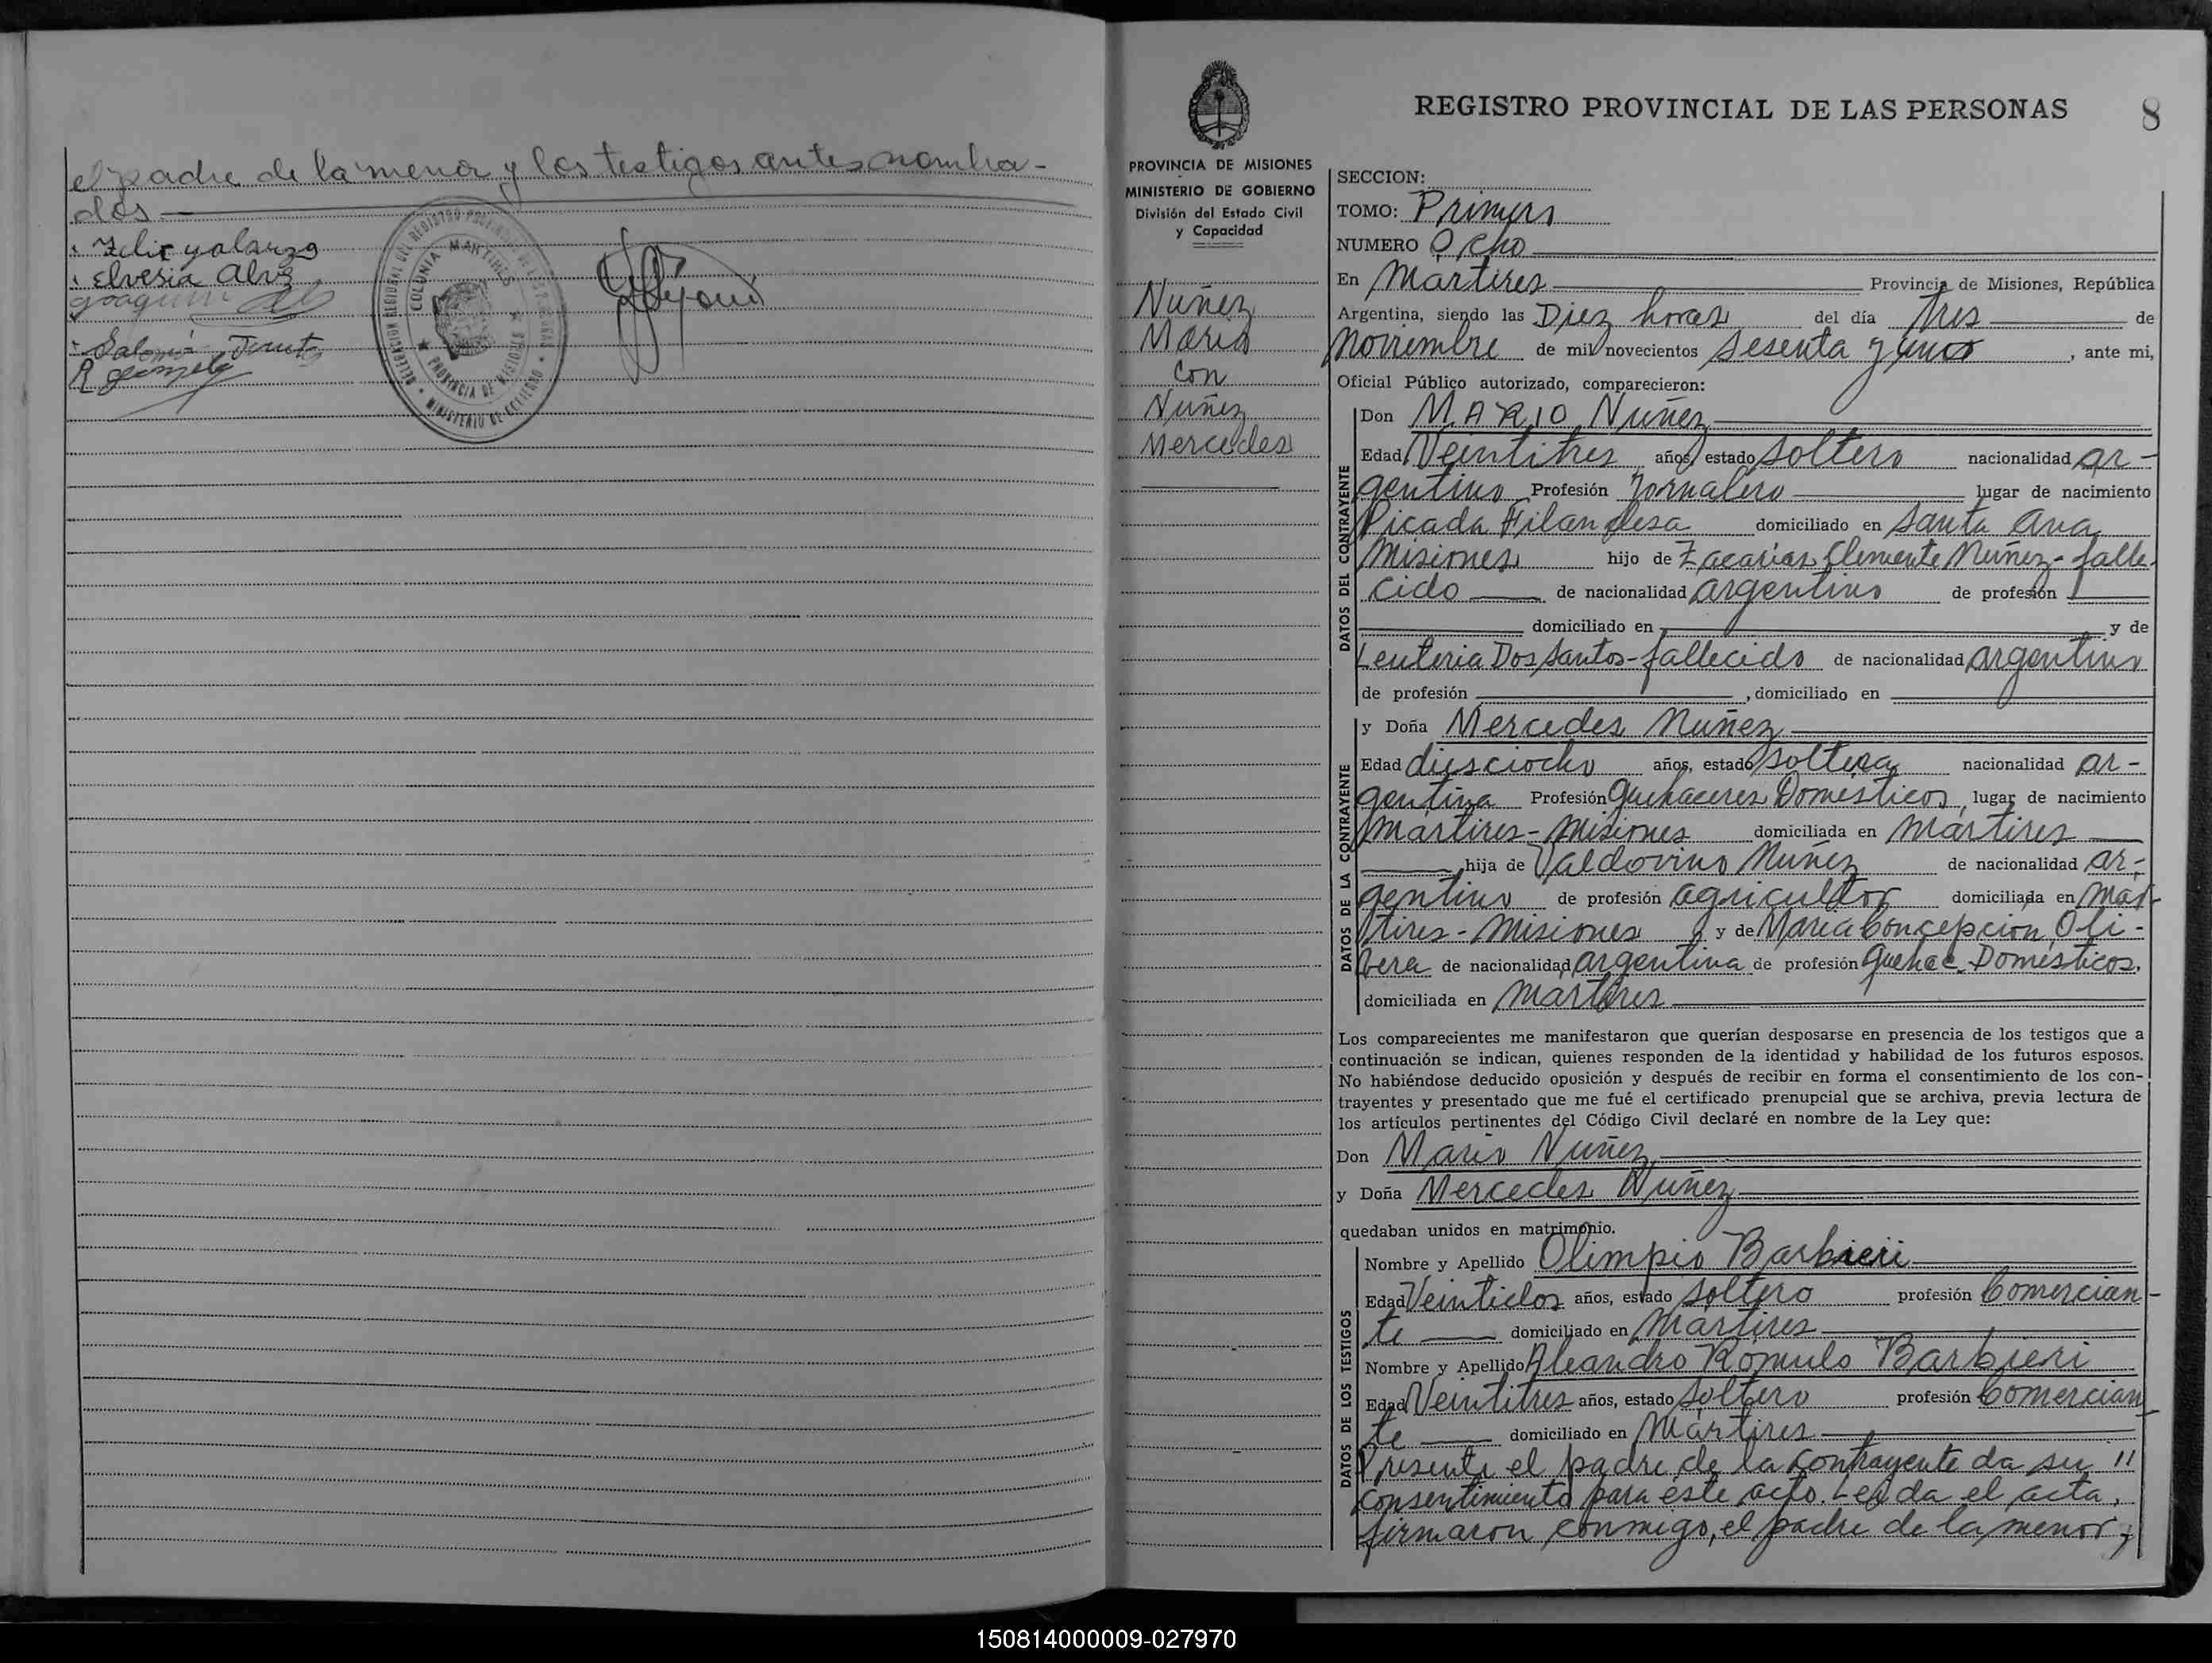 el padre de la menor y los testigos antes nombra-
dos
Elvesia Alvz
Joaquin
R Gonzalez
DELEGACION REGIONAL DEL REGISTRO PROVINCIAL DE LAS PERSONAS
COLONIA MARTIRES
PROVINCIA DE MISIONES
MINISTERIO DE GOBIERNO
PROVINCIA DE MISIONES
MINISTERIO DE GOBIERNO
División del Estado Civil
y Capacidad
Nuñez
Mario
con
Nuñez
Mercedes
REGISTRO PROVINCIAL DE LAS PERSONAS 8
SECCION:
TOMO: Primero
NUMERO Ocho
En Martires Provincia de Misiones, República
Argentina, siendo las Diez horas del día tres de
Noviembre de mil novecientos sesenta y uno, ante mi,
Oficial Público autorizado, comparecieron:
DATOS DEL CONTRAYENTE
Don MARIO Nuñez
Edad Veintitres años, estado soltero nacionalidad ar-
gentino Profesión Jornalero lugar de nacimiento
Picada Filandesa domiciliado en Santa Ana
Misiones hijo de Zacarias Clemente Nuñez - falle-
cido de nacionalidad argentino de profesión
domiciliado en y de
Leuteria Dos Santos - fallecido de nacionalidad argentino
de profesión , domiciliado en
DATOS DE LA CONTRAYENTE
y Doña Mercedes Nuñez
Edad diesciocho años, estado soltera nacionalidad ar-
gentina Profesión Quehaceres Domesticos, lugar de nacimiento
Mártires - Misiones domiciliada en Mártires
hija de Valdovino Nuñez de nacionalidad ar-
gentino de profesión agricultor domiciliada en Már-
tires - Misiones y de Maria Concepcion Oli-
vera de nacionalidad argentina de profesión Quehac. Domésticos.
domiciliada en Mártires
Los comparecientes me manifestaron que querían desposarse en presencia de los testigos que a
continuación se indican, quienes responden de la identidad y habilidad de los futuros esposos.
No habiéndose deducido oposición y después de recibir en forma el consentimiento de los con-
trayentes y presentado que me fué el certificado prenupcial que se archiva, previa lectura de
los artículos pertinentes del Código Civil declaré en nombre de la Ley que:
Don Mario Nuñez
y Doña Mercedes Nuñez
quedaban unidos en matrimonio.
DATOS DE LOS TESTIGOS
Nombre y Apellido Olimpio Barbieri
Edad Veintidos años, estado soltero profesión Comercian-
te domiciliado en Mártires
Nombre y Apellido Aleandro Romulo Barbieri
Edad Veintitres años, estado soltero profesión Comercian-
te domiciliado en Mártires
Presente el padre de la contrayente da su "
consentimiento para este acto. Leida el acta,
firmaron conmigo, el padre de la menor y
150814000009-027970